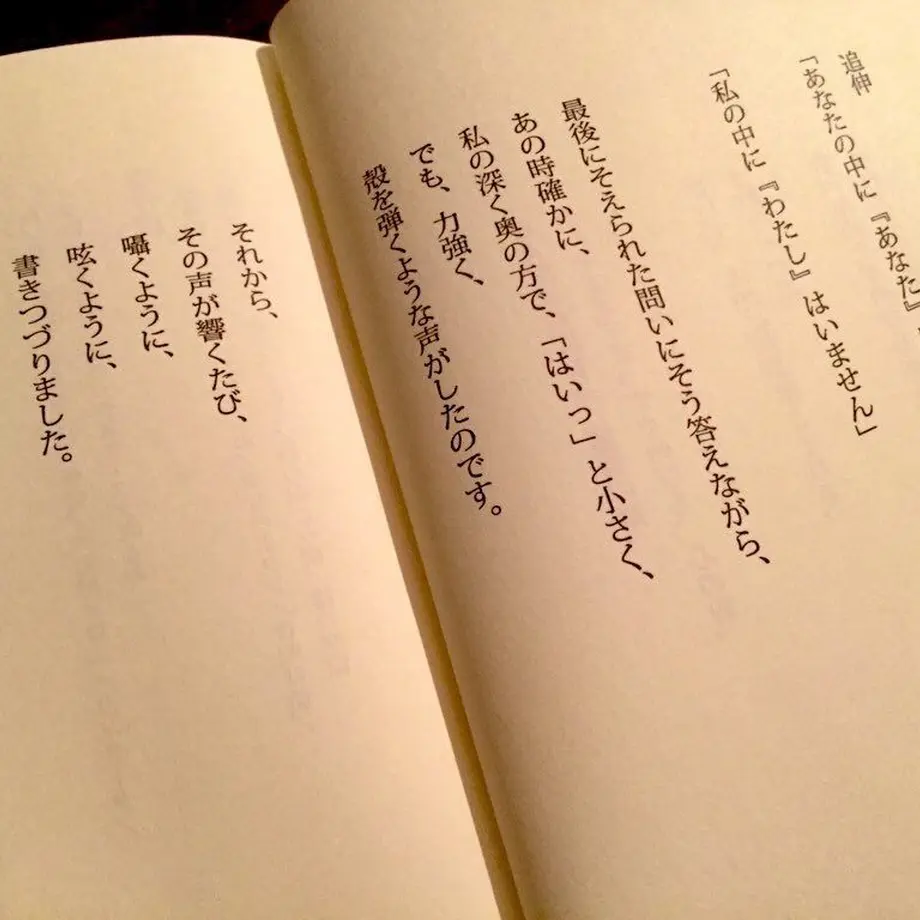 追伸
「あなたの中に『あなた』
「私の中に『わたし』はいません」
最後にそえられた問いにそう答えながら、
あの時確かに、
私の深く奥の方で、「はいっ」と小さく、
でも、力強く、
殻を弾くような声がしたのです。
それから、
その声が響くたび、
囁くように、
呟くように、
書きつづりました。